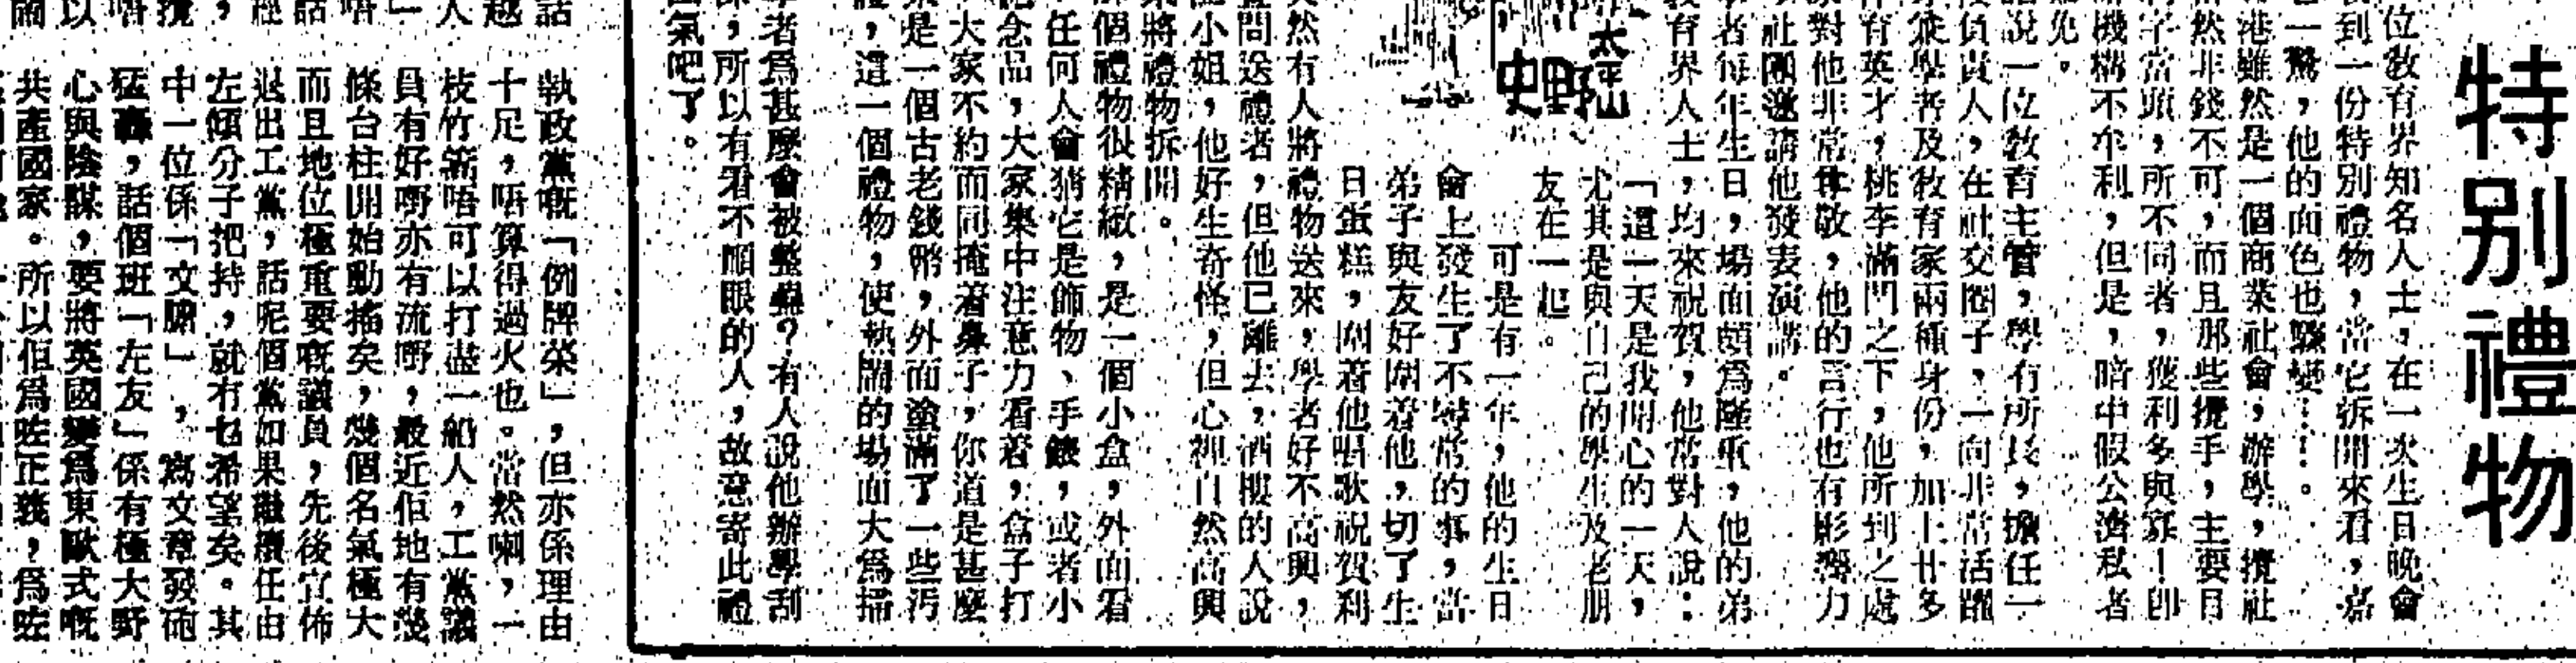 特別禮物
位敎育界知名人士，在一次生日晚會
到一份特別禮物，當它拆開來看，嘉
一驚，他的面色也驟變…！。
港雖然是一個商業社會，辦學，攪社
然非錢不可，而且那些攪手，主要目
字當頭，所不同者，獲利多與寡！即
機構不牟利，但是，暗中假公濟私者
免。
說一位敎育主管，學有所長，擔任一
負責人，在社交圈子，一向非常活躍
學者及敎育家兩種身份，加上廿多
育英才，桃李滿門之下，他所到之處
對他非常尊敬，他的言行也有影響力
社團邀請他發表演講。
者每年生日，場面頗爲隆重，他的弟
育界人士，均來祝賀，他常對人說：
「這一天是我開心的一天，
尤其是與自己的學生及老朋
友在一起。
太平山
野史
可是有一年，他的生日
會上發生了不尋常的事，當
弟子與友好圍着他，切了生
日蛋糕，圍着他唱歌祝賀利
然有人將禮物送來，學者好不高興，
問送禮者，但他已離去，酒樓的人說
小姐，他好生奇怪，但心裡自然高興
將禮物拆開。
個禮物很精緻，是一個小盒，外面看
任何人會猜它是飾物、手錶，或者小
念品，大家集中注意力看着，盒子打
大家不約而同掩着鼻子，你道是甚麼
是一個古老錢幣，外面塗滿了一些污
，這一個禮物，使熱鬧的場面大爲掃
者爲甚麼會被整蠱？有人說他辦學刮
，所以有看不順眼的人，故意寄此禮
氣吧了。
話
執政黨嘅「例牌菜」，但亦係理由
越
十足，唔算得過火也。當然喇，一
人
枝竹篙唔可以打盡一船人，工黨議
」
員有好嘢亦有流嘢，最近佢地有幾
唔
條台柱開始動搖矣，幾個名氣極大
話
而且地位極重要嘅議員，先後宣佈
退出工黨，話呢個黨如果繼續任由
，
左傾分子把持，就冇乜希望矣。其
攪
中一位係「文膽」，寫文章發砲
唔
猛轟，話個班「左友」係有極大野
以
心與陰謀，要將英國變爲東歐式嘅
鬧
共產國家。所以佢爲咗正義，爲咗